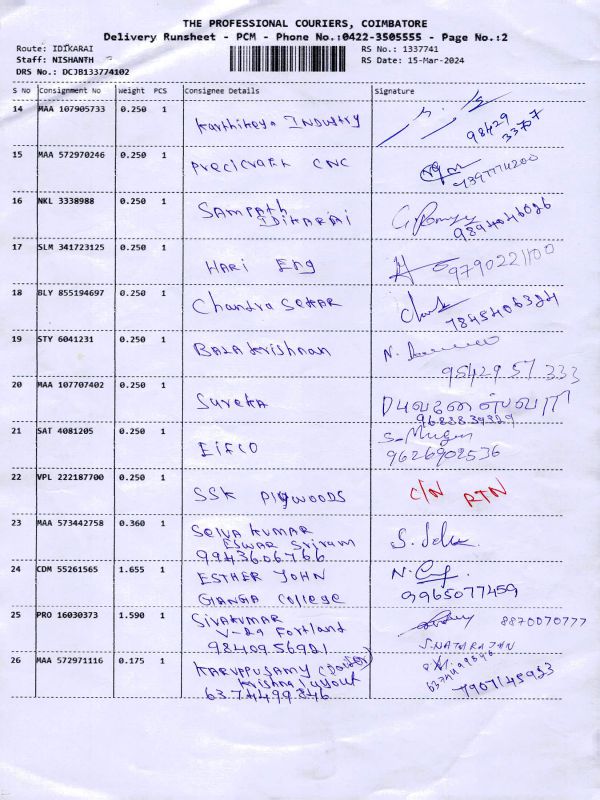 THE PROFESSIONAL COURIERS, COIMBATORE
Delivery Runsheet - PCM - Phone No.:0422-3505555 - Page No.:2
Route: IDIKARAI RS No.: 1337741
Staff: NISHANTH RS Date: 15-Mar-2024
DRS No.: DCJB133774102
S No Consignment No Weight PCS Consignee Details Signature
14 MAA 107905733 0.250 1 Karthikeya Industry
98429
33707
15 MAA 572970246 0.250 1 Precicraft CNC
16 NKL 3338988 0.250 1 SAMPATH
IDIKARAI
9894046026
17 SLM 341723125 0.250 1 HARI Eng 9790221100
18 BLY 855194697 0.250 1 Chandra Sekar
7845406324
19 STY 6041231 0.250 1 Balakrishnan
95429 57 333
20 MAA 107707402 0.250 1 Sureka
9688839329
21 SAT 4081205 0.250 1 EIFCO
9626902536
22 VPL 222187700 0.250 1 SSK PlyWOODS C/N RTN
23 MAA 573442758 0.360 1 Selva kumar
Eswar Sriram
9943606766
24 CDM 55261565 1.655 1 ESTHER JOHN
GANGA College 9965077459
25 PRO 16030373 1.590 1 Sivakumar 8870070777
V-29 Fortland
9840956921 S.NATARAJAN
26 MAA 572971116 0.175 1 KARUPPUSAMY
Krishna layout 7907145923
6374499846